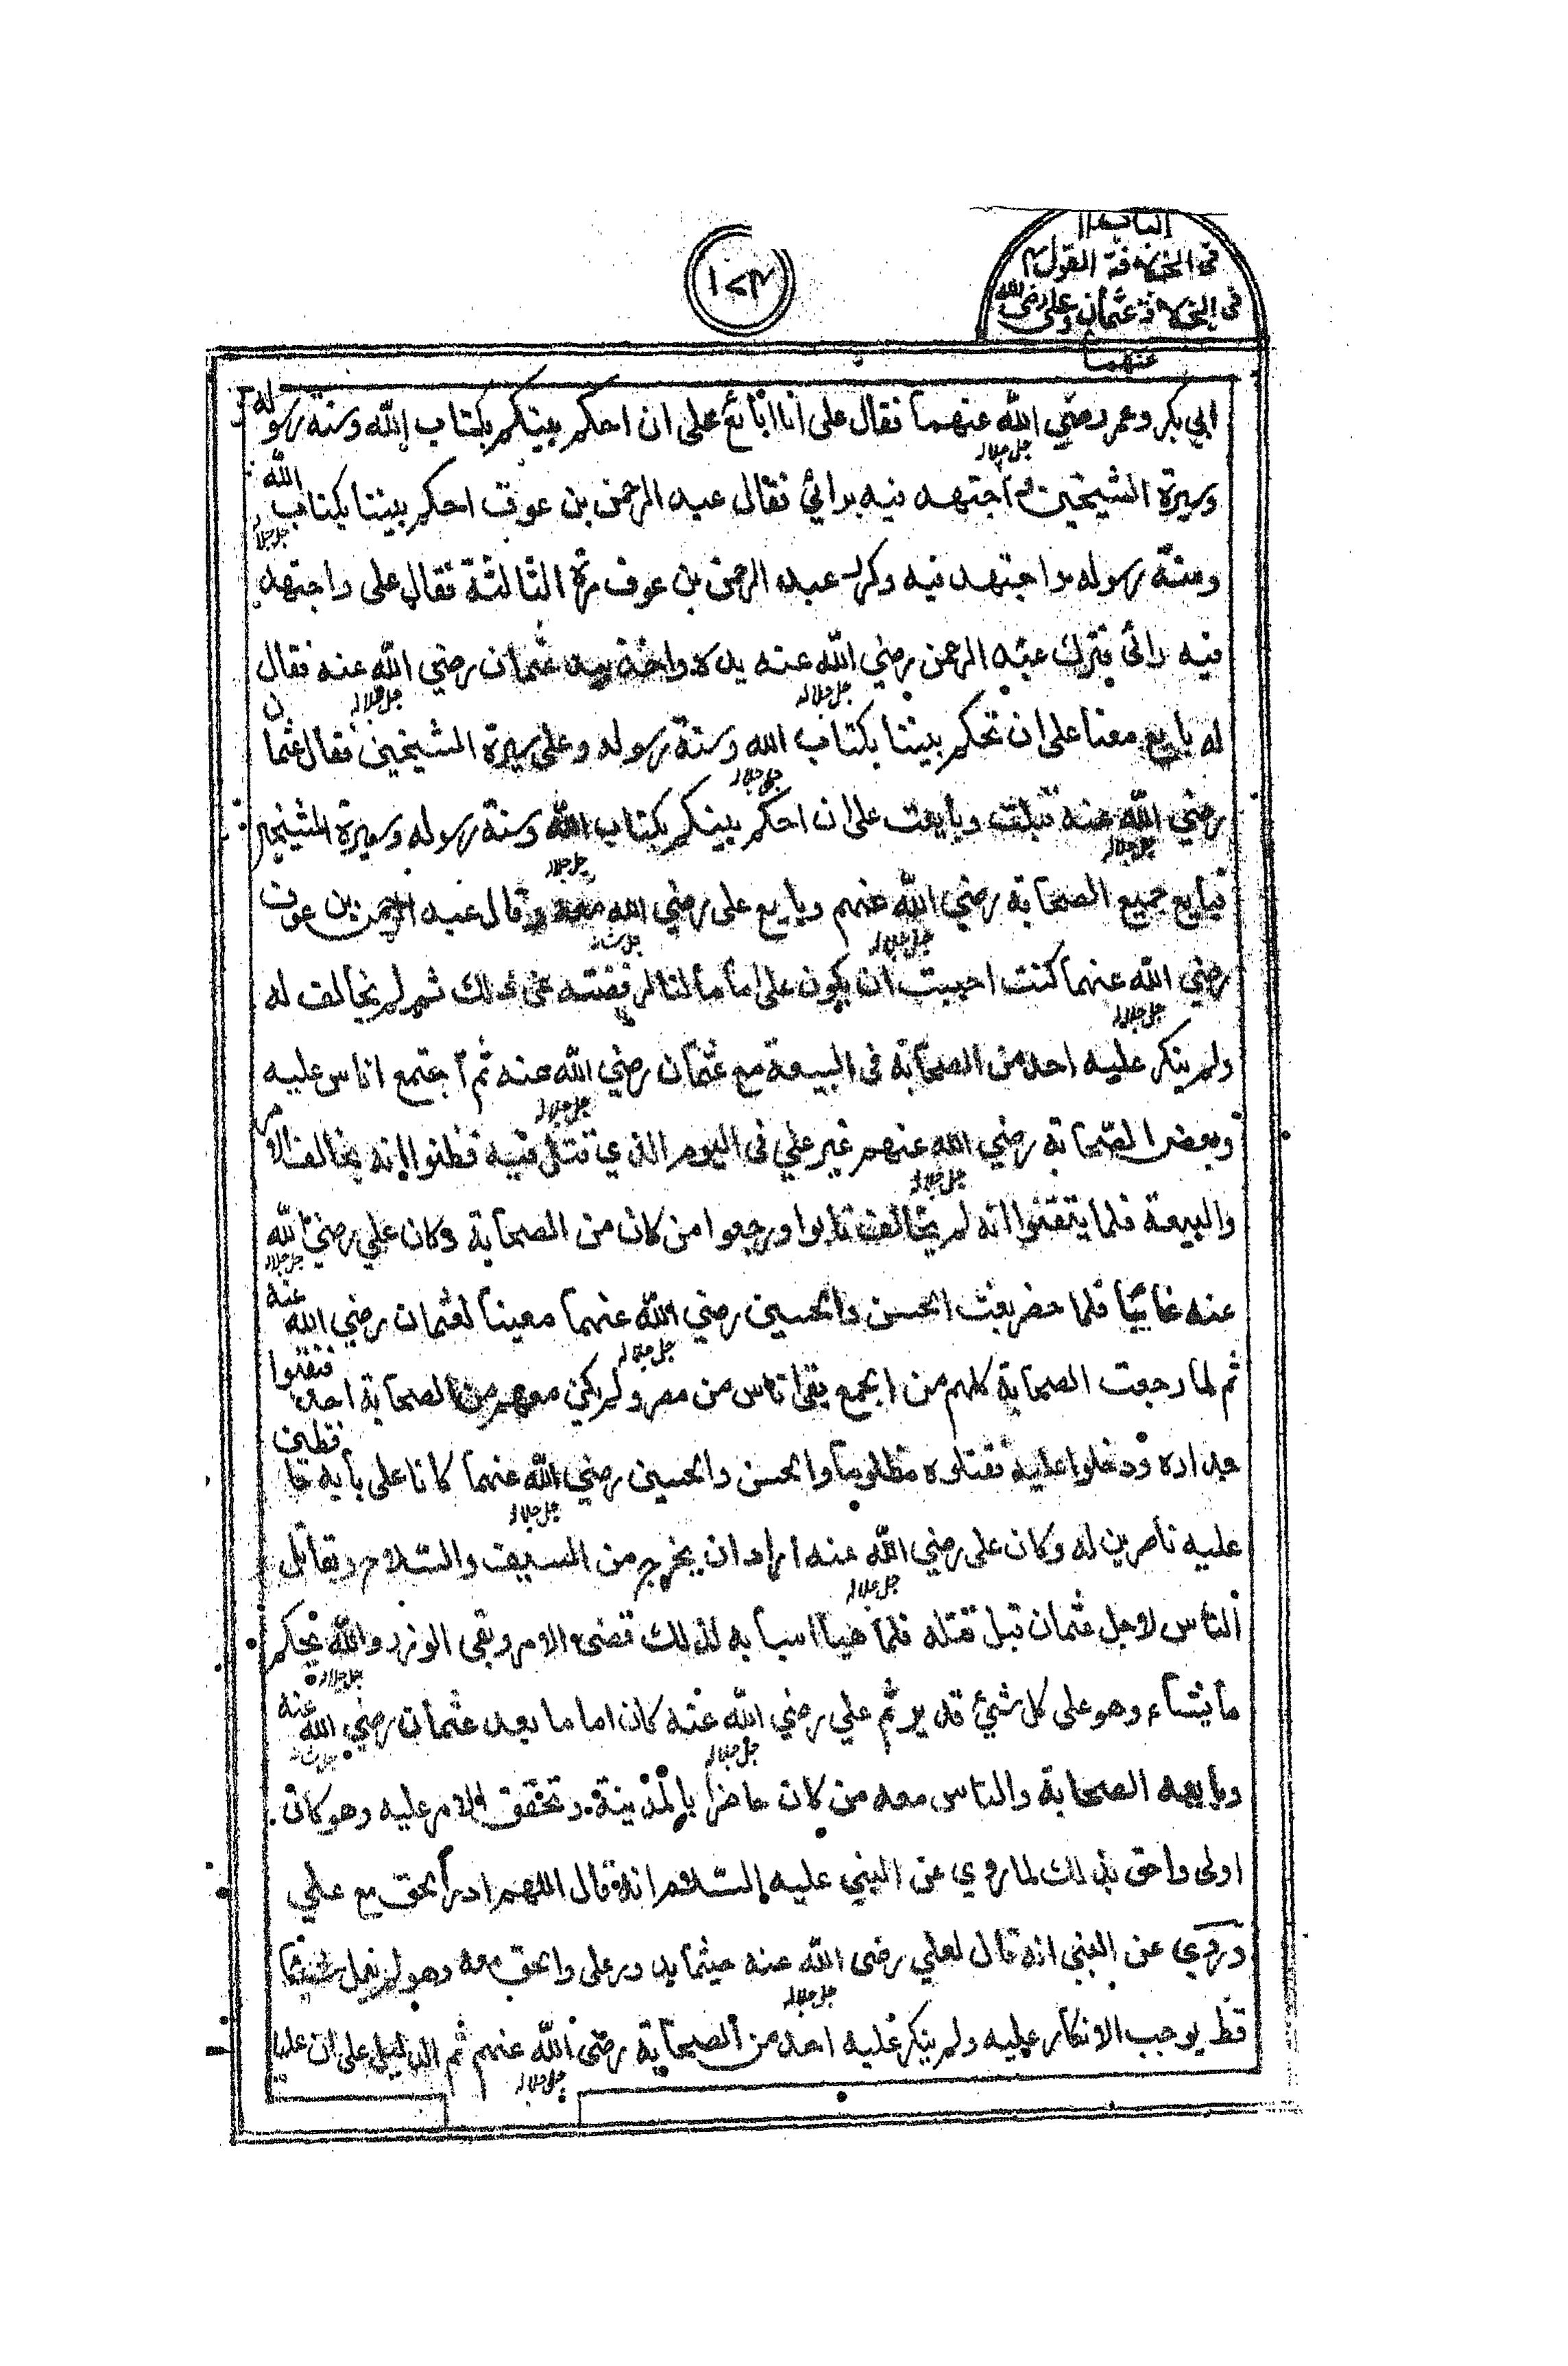 الباب ١١
في الخلافة القول ٣
في الخلافة عثمان وعلي رضى الله
عنهما
١٧٣
ابي بكر وعمر رضي الله عنهما فقال على انا ابايع على ان احكم بينكم بكتاب الله وسنة رسوله
جل جلاله
وسيرة الشيخين ثم اجتهد فيه برائي فقال عبد الرحمن بن عوف احكم بيننا بكتاب الله
جل جلاله
وسنة رسوله واجتهد فيه وكرر عبد الرحمن بن عوف مرة الثالثة فقال على واجتهد
فيه رائى فترك عبد الرحمن رضي الله عنه يده واخذ بيد عثمان رضي الله عنه فقال
جل جلاله جل جلاله
له بايع معنا على ان تحكم بيننا بكتاب الله وسنة رسوله وعلى سيرة الشيخين فقال عثمان
جل جلاله
رضي الله عنه قبلت وبايعت على ان احكم بينكم بكتاب الله وسنة رسوله وسيرة الشيخين
جل جلاله جل جلاله
فبايع جميع الصحابة رضي الله عنهم وبايع على رضي الله معه وقال عبد الرحمن بن عوف
جل جلاله
رضي الله عنهما كنت احببت ان يكون على اماما لنا لرفقته عن ذلك ثم لم يخالف له
جل جلاله
ولم ينكر عليه احد من الصحابة في البيعة مع عثمان رضي الله عنه ثم اجتمع اناس عليه
جل جلاله
وبعض الصحابة رضي الله عنهم غير علي في اليوم الذي قتل فيه فظنوا انه يخالف الامر
جل جلاله
والبيعة فلما يتقنوا انه لم يخالف تابوا ورجعوا من كان من الصحابة وكان علي رضي الله
جل جلاله
عنه غائبا فلما حضر بعث الحسن والحسين رضي الله عنهما معينا لعثمان رضي الله عنه
جل جلاله
ثم لما رجعت الصحابة كلهم من الجمع بقى اناس من مصر ولم يكن معهم من الصحابة احد فنقبوا
جداره ودخلوا عليه فقتلوه مظلوما والحسن والحسين رضي الله عنهما كانا على بابه حافظين
جل جلاله
عليه ناصرين له وكان على رضي الله عنه اراد ان يخرج من السيف والسلام ويقاتل
جل جلاله
الناس لاجل عثمان قبل قتله فلما هيا اسبابه لذلك قضى الامر وبقى الوزر والله يحكم
جل جلاله
ما يشاء وهو على كل شيئ قدير ثم علي رضي الله عنه كان اماما بعد عثمان رضي الله عنه
جل جلاله
وبايعه الصحابة والناس معه من كان حاضرا بالمدينة وتحقق الامر عليه وهو كان
اولى واحق بذلك لما روي عن النبي عليه السلام انه قال اللهم ادر الحق مع علي
وروي عن النبي انه قال لعلي رضى الله عنه حيثما يدور على والحق معه وهو لم يفعل شيئا
جل جلاله
قط يوجب الانكار عليه ولم ينكر عليه احد من الصحابة رضى الله عنهم ثم الدليل على ان عليا
جل جلاله